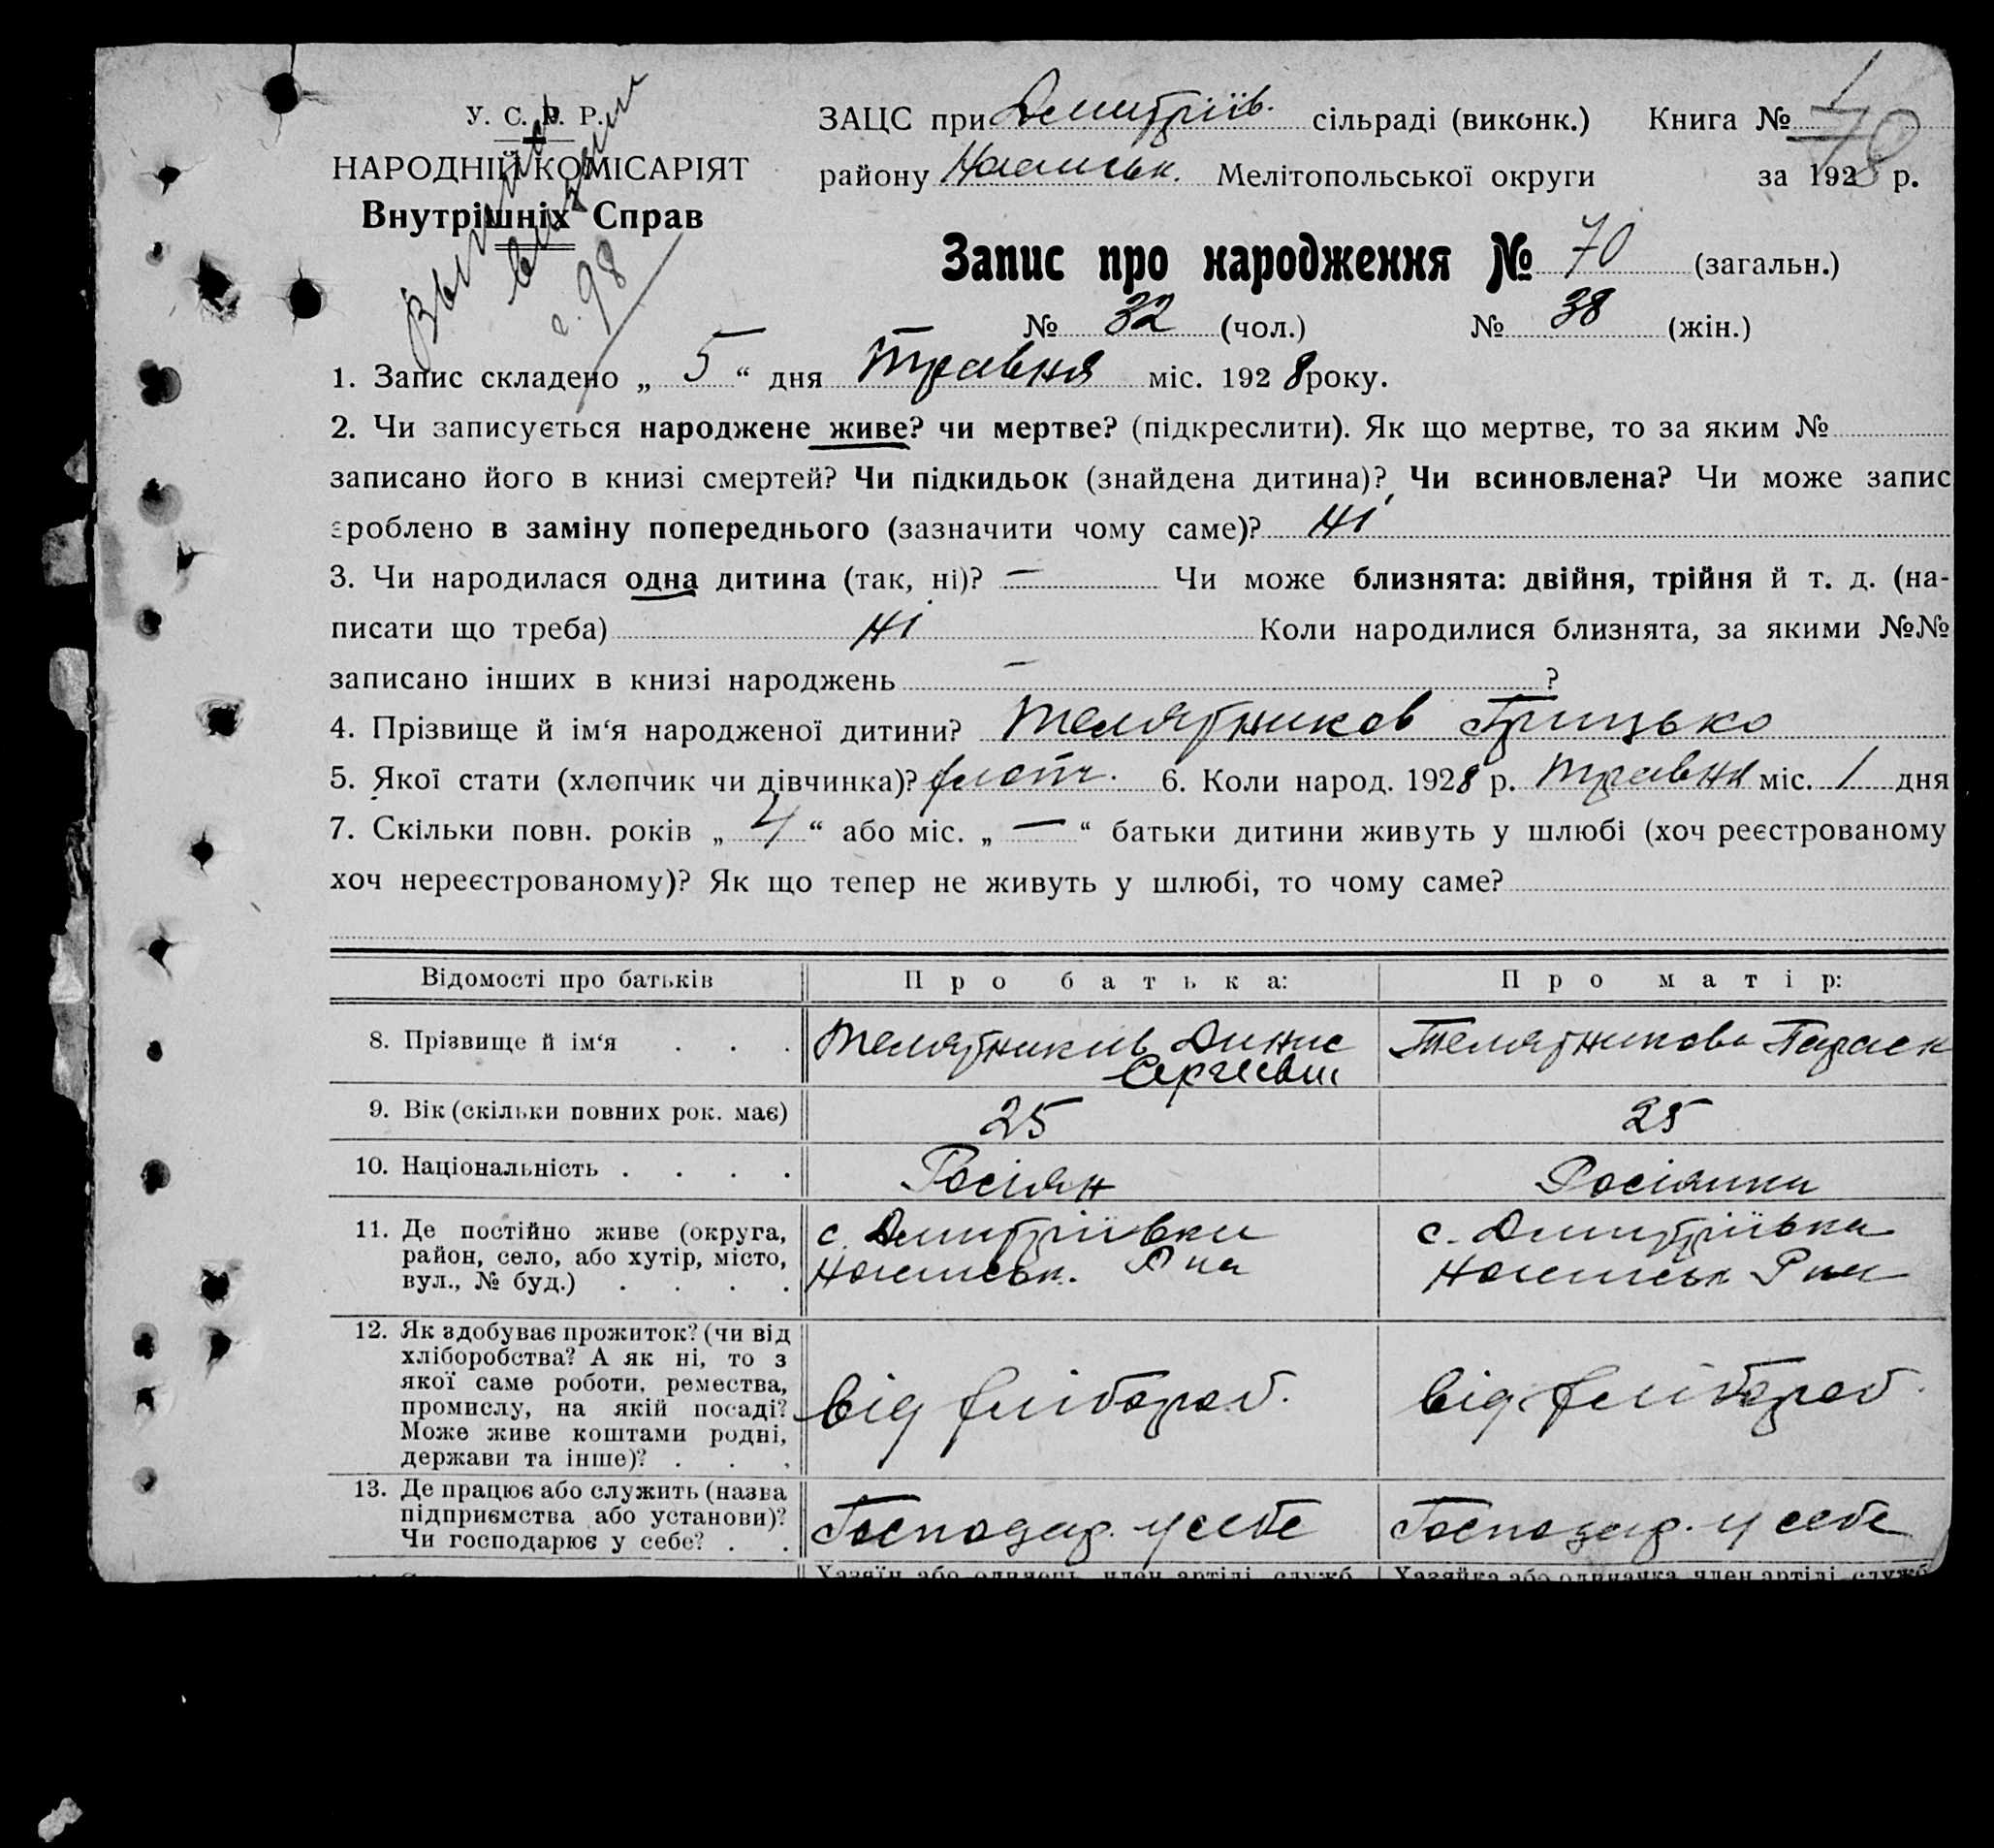 У. С. Р. Р.
НАРОДНІЙ КОМІСАРІЯТ
Внутрішніх Справ
ЗАЦС при Дмитріїв. сільраді (виконк.) Книга № 1
району Мелітопольської округи за 1928 р.
70
98
Запис про народження № 70 (загальн.)
№ 32 (чол.) № 38 (жін.)
1. Запис складено „ 5 “ дня Травня міс. 1928 року.
2. Чи записується народжене живе? чи мертве? (підкреслити). Як що мертве, то за яким №
записано його в книзі смертей? Чи підкидьок (знайдена дитина)? Чи всиновлена? Чи може запис
зроблено в заміну попереднього (зазначити чому саме)? Ні
3. Чи народилася одна дитина (так, ні)? — Чи може близнята: двійня, трійня й т. д. (на-
писати що треба) Ні Коли народилися близнята, за якими №№
записано інших в книзі народжень — ?
4. Прізвище й ім‘я народженої дитини? Телятников Грицько
5. Якої стати (хлопчик чи дівчинка)? хлопч. 6. Коли народ. 1928 р. Травня міс. 1 дня
7. Скільки повн. років „ 4 “ або міс. „ — “ батьки дитини живуть у шлюбі (хоч реєстрованому
хоч нереєстрованому)? Як що тепер не живуть у шлюбі, то чому саме?
Відомості про батьків Про батька: Про матір:
8. Прізвище й ім‘я . . . Телятников Динис Телятникова Параск
Сергієвич
9. Вік (скільки повних рок. має) 25 25
10. Національність . . . . Росіян Росіянка
11. Де постійно живе (округа, с. Дмитріївка с. Дмитріївка
район, село, або хутір, місто, Р на Р на
вул., № буд.) . . . .
12. Як здобуває прожиток? (чи від
хліборобства? А як ні, то з
якої саме роботи, ремества,
промислу, на якій посаді? від хлібороб. від хлібороб.
Може живе коштами родні,
держави та інше)? . . .
13. Де працює або служить (назва
підприємства або установи)? Господар. у себе Господар. у себе
Чи господарює у себе? . .
Хазяїн або одинець, член артілі, служб. Хазяйка або одиначка, член артілі, служб